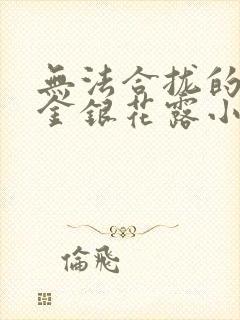 無法合拢的
金銀花露小
倫飛